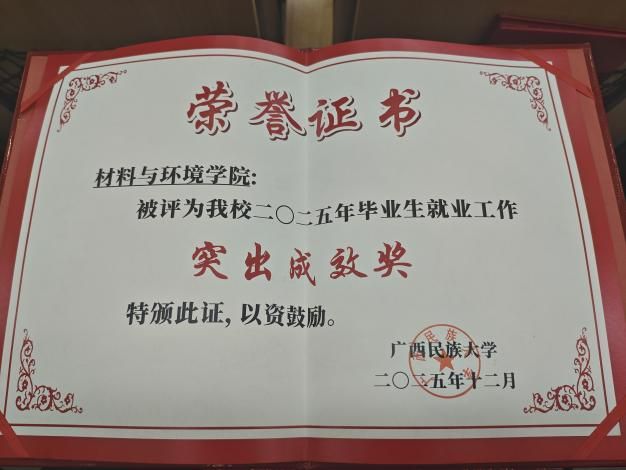 荣誉证书
材料与环境学院:
被评为我校二〇二五年毕业生就业工作
突出成效奖
特颁此证,以资鼓励。
广西民族大学
二〇二五年十二月